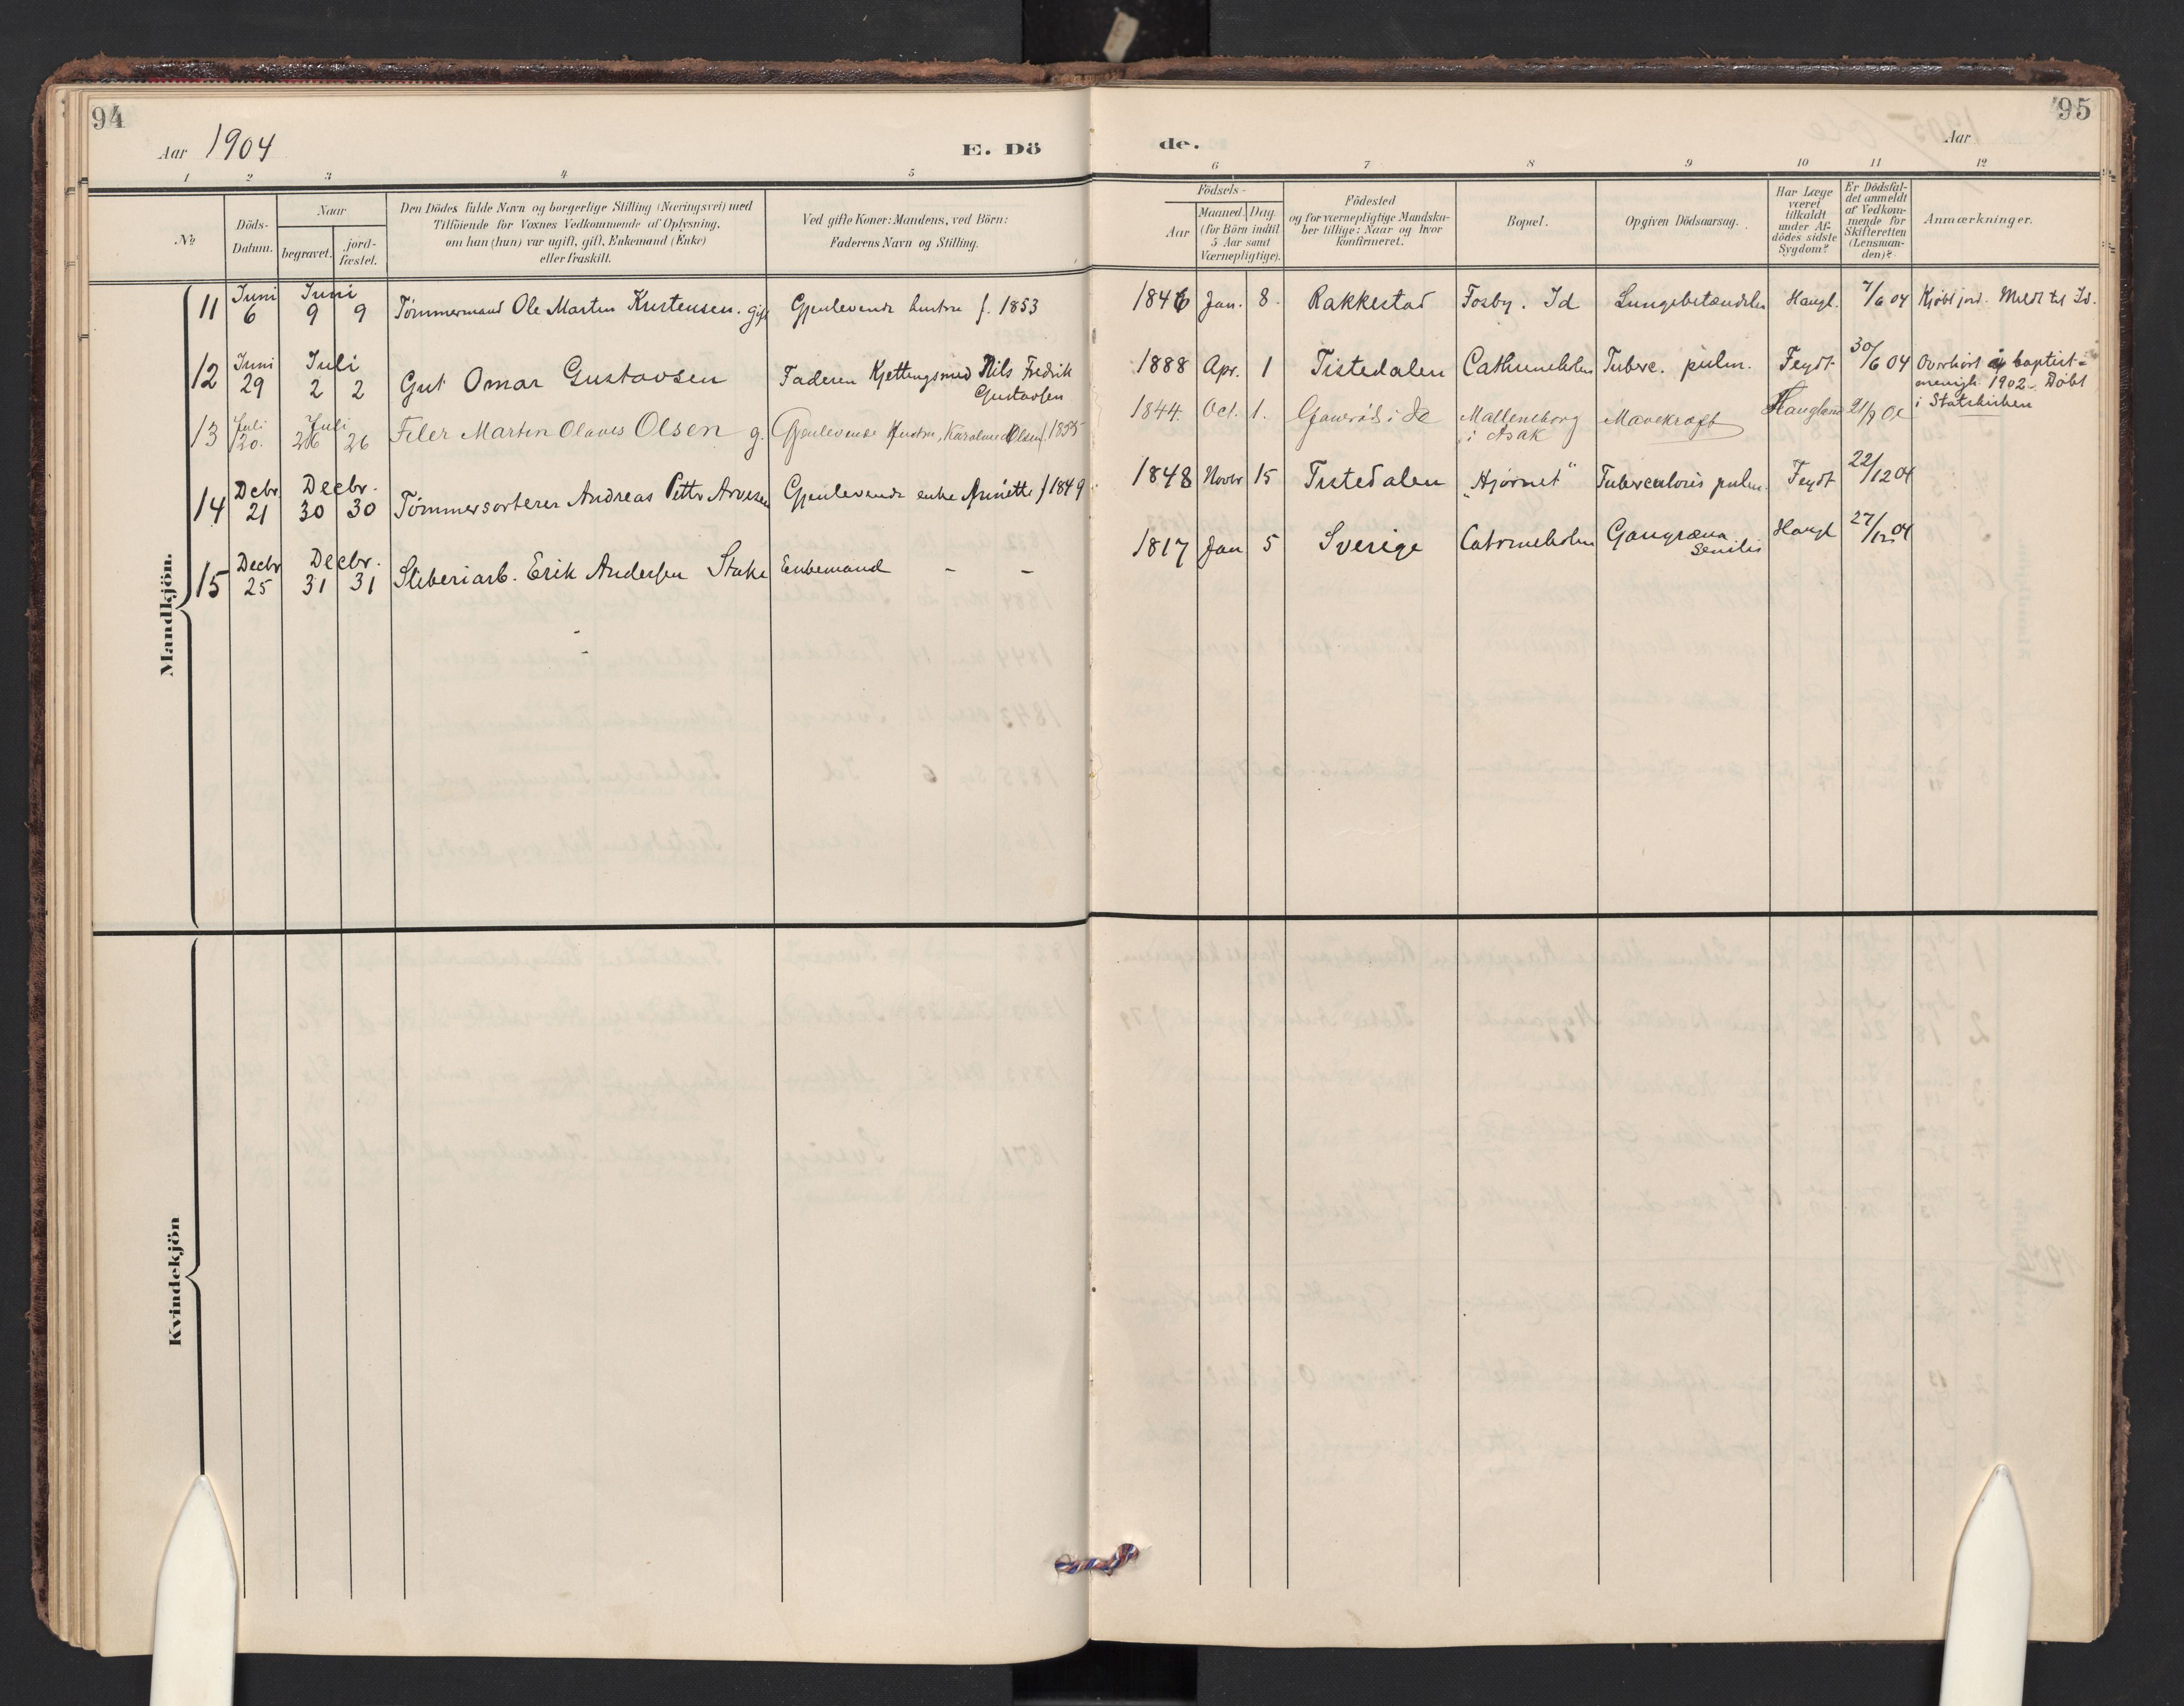 94
Aar 1904
E. Dö
1 2 3 4 5
№
Döds-
Datum.
Naar
begravet.
jord-
fæstet.
Den Dödes fulde Navn og borgerlige Stilling (Næringsvei) med
Tilföiende for Voxnes Vedkommende af Oplysning,
om han (hun) var ugift, gift, Enkemand (Enke)
eller fraskilt.
Ved gifte Koner: Mandens, ved Börn:
Faderens Navn og Stilling.
Mandkjön.
11 Juni 6 Juni 9 9 Tømmermand Ole Martin Kristensen. gift Gjenlevende hustru f. 1853
12 Juni 29 Juli 2 2 Gut Omar Gustavsen Faderen Kjettingsmed Nils Fredrik
Gustavsen
13 Juli 20. Juli 26 26 Filer Martin Olaves Olsen g. Gjenlevende Hustru, Karoline Olsen f 1855
14 Decbr 21 Decbr. 30 30 Tømmersorterer Andreas Petter Arvesen Gjenlevende enke Anette f 1849
15 Decbr 25 Decbr. 31 31 Sliberiarb. Erik Andersen Stake Enkemand - -
Kvindekjön
95
de.
Aar
6 7 8 9 10 11 12
Födsels-
Aar
Maaned. Dag.
(for Börn indtil
5 Aar samt
Værnepligtige).
Födested
og for værnepligtige Mandsku-
ber tillige: Naar og hvor
konfirmeret.
Bopæl.
Opgiven Dödsaarsag.
Har Læge
været
tilkaldt
under Af-
dödes sidste
Sygdom?
Er Dödsfal-
det anmeldt
af Vedkom-
mende for
Skifteretten
(Lensman-
den)?
Anmærkninger.
1846 Jan. 8. Rakkestad Fosby. Id Lungebetændelse Haugl. 7/6 04 Kjöbt jord. Meldt til Id.
1888 Apr. 1 Tistedalen Cathrineholm Tuberc. pulm. Feydt 30/6 04 Overhört i baptist-
menigh. 1902. Döbt
i Statskirken
1844. Oct. 1. i Id Malleneborg
i Asak Mavekræft Haugland 21/7 04
1848 Novbr 15 Tistedalen „Hjørnet" Tuberculosis pulm. Feydt 22/12 04
1817 Jan 5 Sverige Catrineholm Gangræna
Senilis Haugl 27/12 04